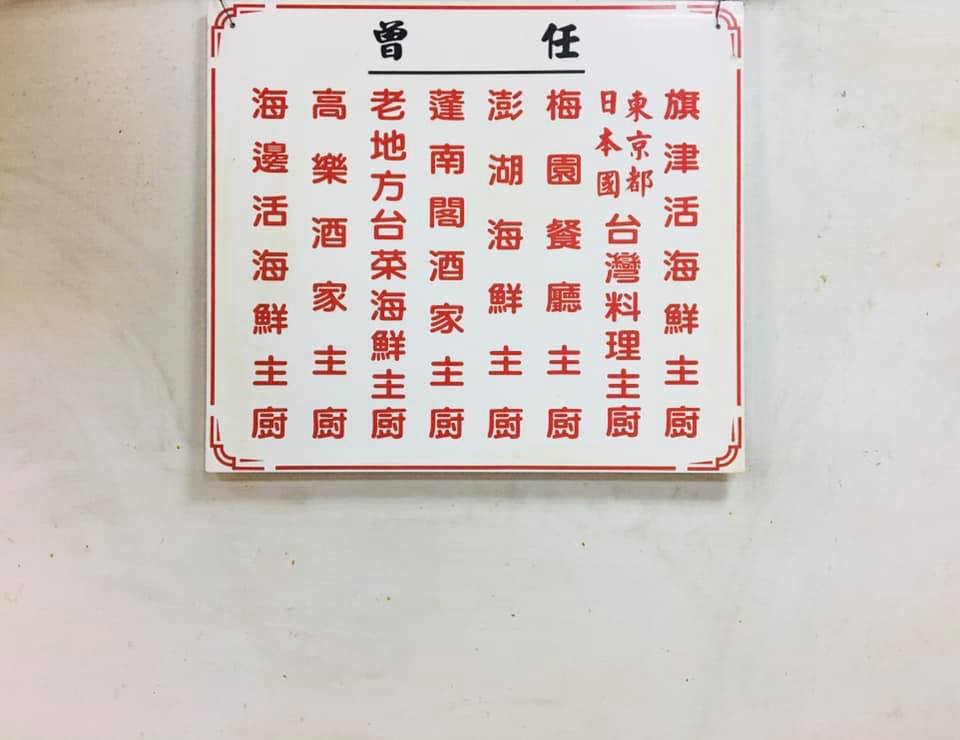 曾任
旗津活海鮮主廚
日本國東京都台灣料理主廚
梅園餐廳主廚
澎湖海鮮主廚
蓬南閣酒家主廚
老地方台菜海鮮主廚
高樂酒家主廚
海邊活海鮮主廚